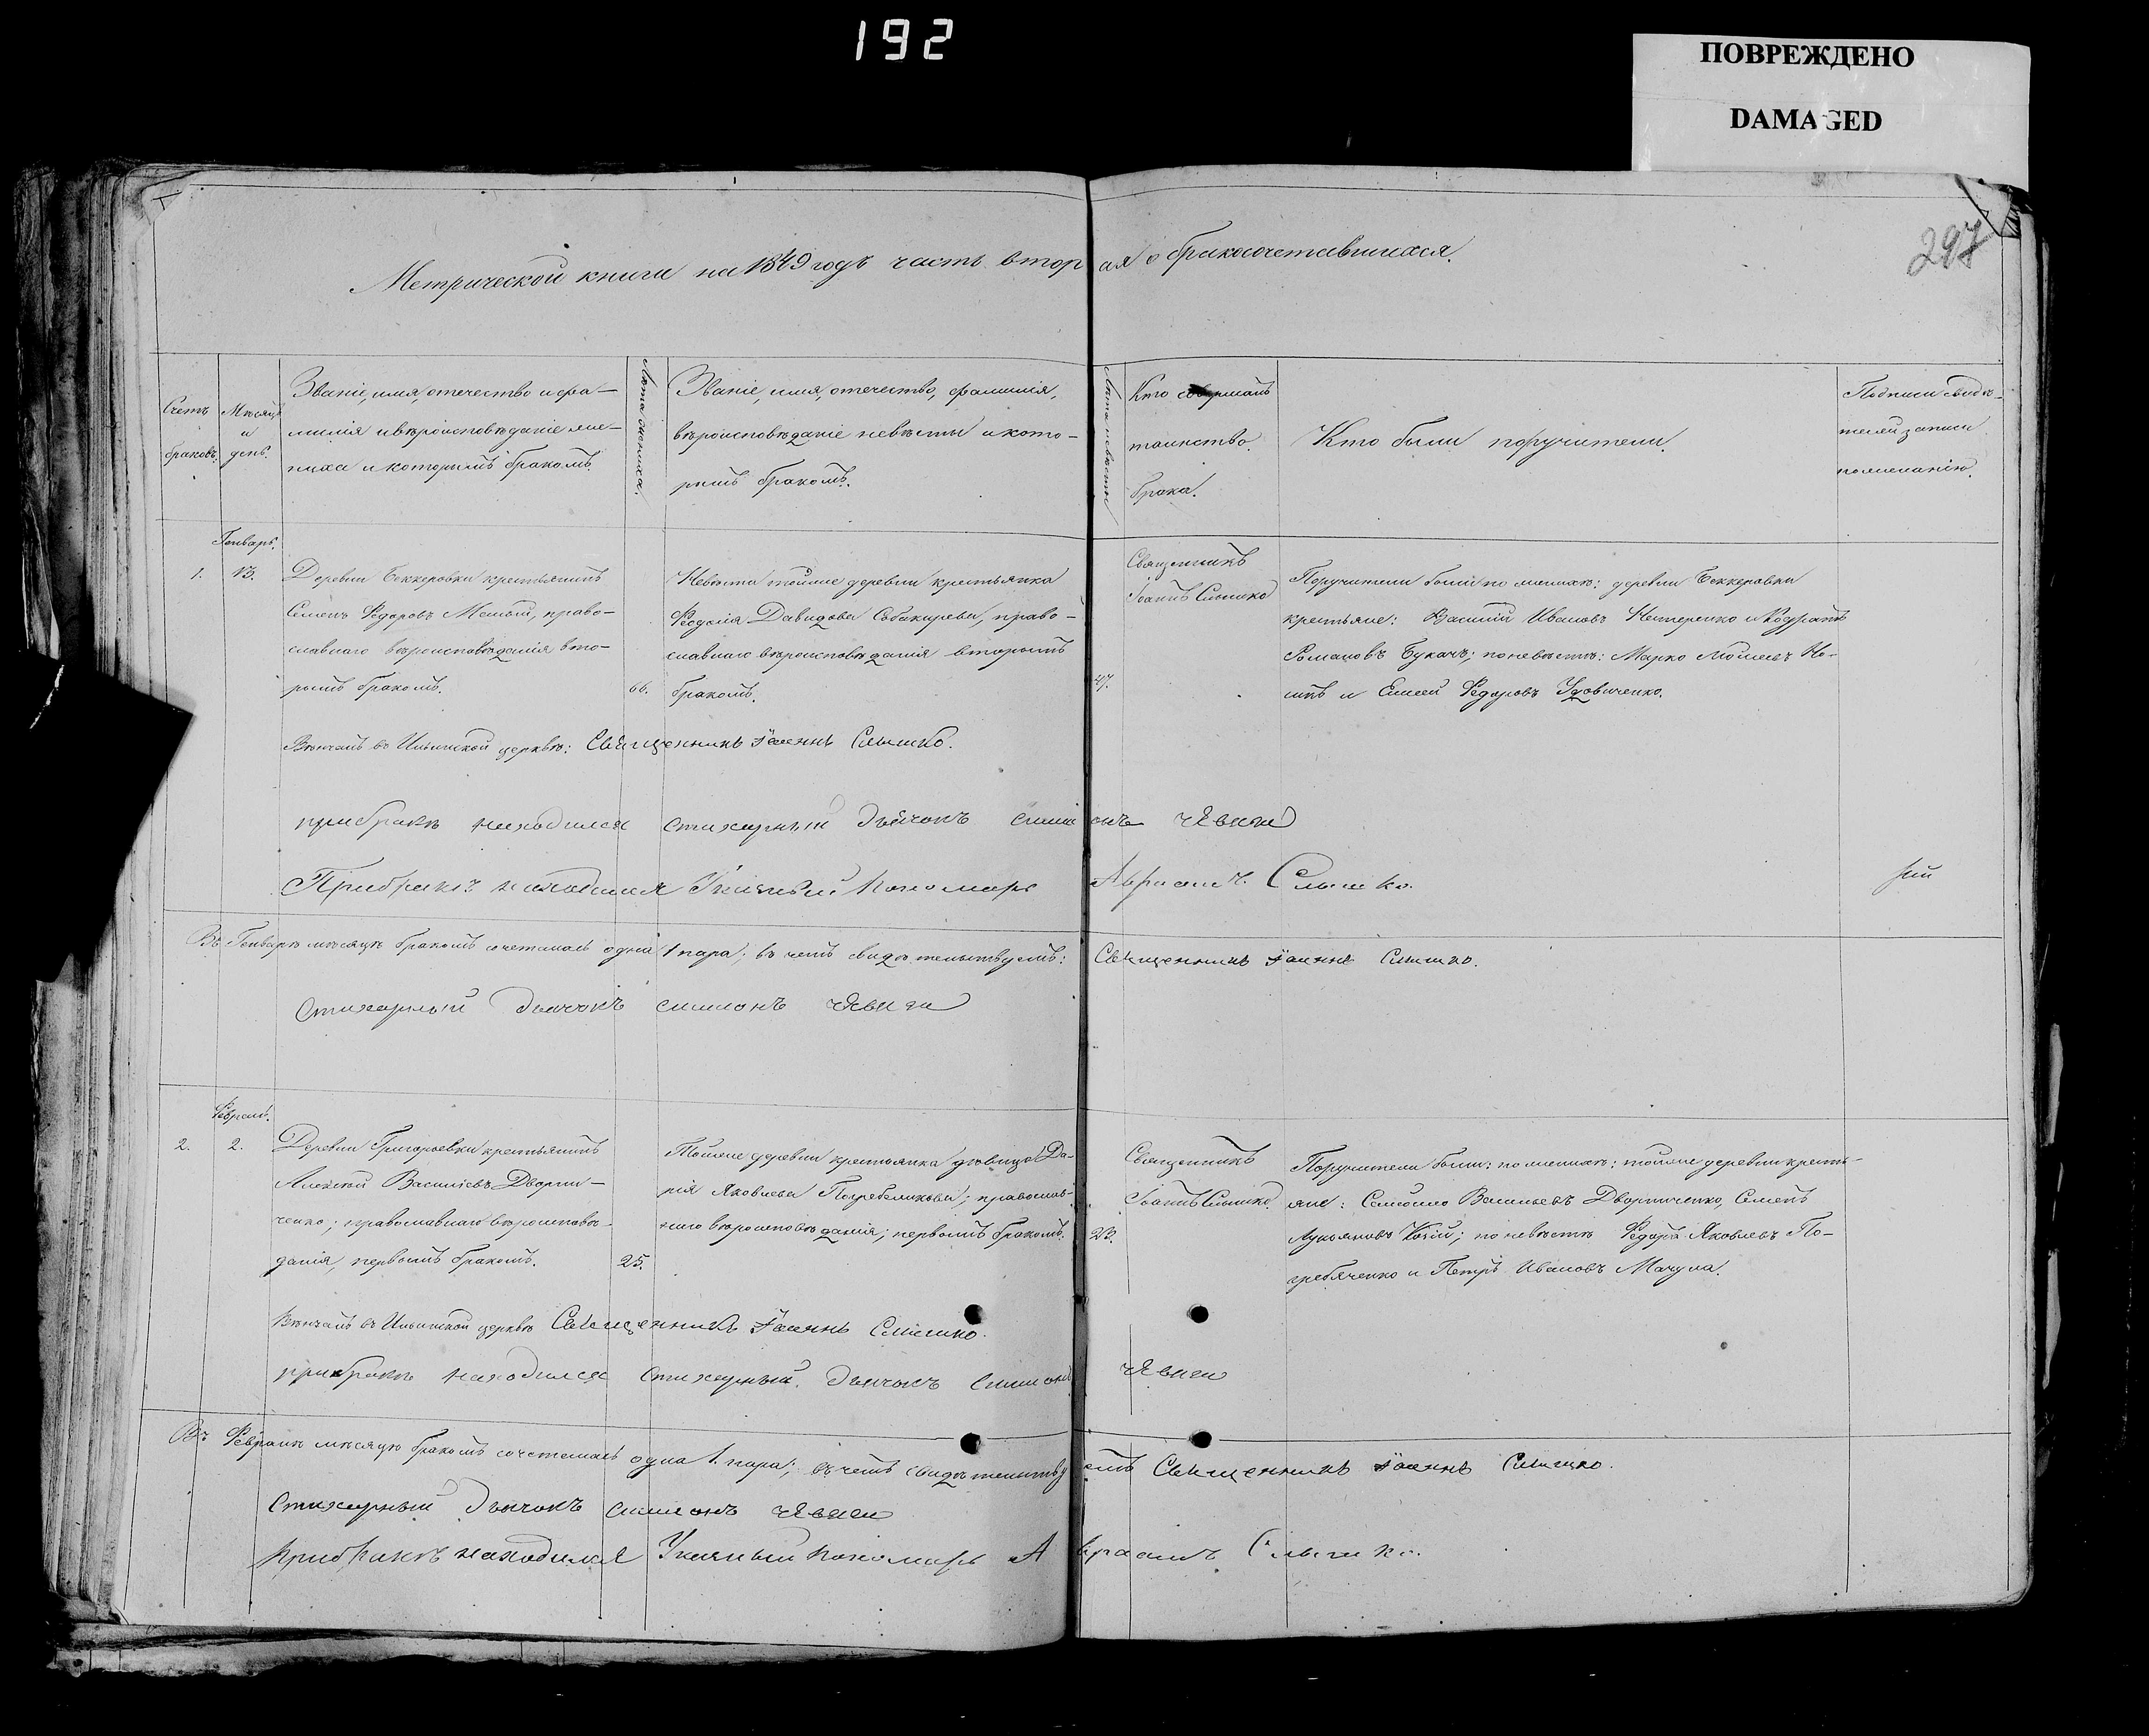 192
ПОВРЕЖДЕНО
DAMAGED
297
Метрической книги на 1849 годъ часть вторая о бракосочетавшихся.
Счетъ браковъ.
Мѣсяцъ и день.
Званіе, имя, отечество и фа-
милія и вѣроисповѣданіе же-
ниха и которымъ бракомъ.
Лѣта жениха.
Званіе, имя, отечество, фамилія,
вѣроисповѣданіе невѣсты и кото-
рымъ бракомъ.
Лѣта невѣсты
Кто совершалъ
таинство
брака.
Кто были поручители.
Подписи свидѣ-
телей записи
по желанію.
Генварь.
1.
13.
Деревни Беккеровки крестьянинъ
Семенъ Ѳедоровъ Малый, право-
славнаго вѣроисповѣданія вто-
рымъ бракомъ.
66.
Невѣста тойже деревни крестьянка
Давидова православнаго вѣроисповѣданія вторымъ
бракомъ.
47.
Священникъ
Іоаннъ Слышко
Поручители были по женихѣ: деревни Беккеровки
крестьяне: Василій Ивановъ Нетеренко и Кодратъ
Романовъ Букачъ; по невѣстѣ: Марко
и Ѳедоровъ Удовиченко.
Вѣнчалъ въ Ильинской церквѣ: Священникъ Іоаннъ Слышко.
при бракѣ находился стихарный дьячокъ Симионъ
При бракѣ находился Указный Пономарь Авраамъ Слышко.
Въ Генварѣ мѣсяцѣ бракомъ сочеталась одна 1 пара; въ чемъ свидѣтельствуемъ: Священникъ Іоаннъ Слышко.
Стихарный дьячокъ Симионъ
Февраль.
2.
2.
Деревни Григоровки крестьянинъ
Алексѣй Васильевъ Дворни-
ченко; православнаго вѣроисповѣ-
данія, первымъ бракомъ.
25.
Тойже деревни крестьянка дѣвица Да-
рія Яковлева православ-
наго вѣроисповѣданія; первымъ бракомъ.
23.
Священникъ
Іоаннъ Слышко.
Поручители были: по женихѣ: тойже деревни кресть-
яне: Самойло Васильевъ Дворниченко, Семенъ
Лукьяновъ по невѣстѣ Ѳедоръ Яковлевъ По-
гребяченко и Петръ Ивановъ Мачула.
Вѣнчалъ въ Ильинской церквѣ Священникъ Іоаннъ Слышко.
при бракѣ находился стихарный дьячокъ Симионъ
Въ Февралѣ мѣсяцѣ бракомъ сочеталась одна 1. пара; въ чемъ свидѣтельствуемъ Священникъ Іоаннъ Слышко.
Стихарный дьячокъ Симионъ
При бракѣ находился Указный Пономарь Авраамъ Слышко.